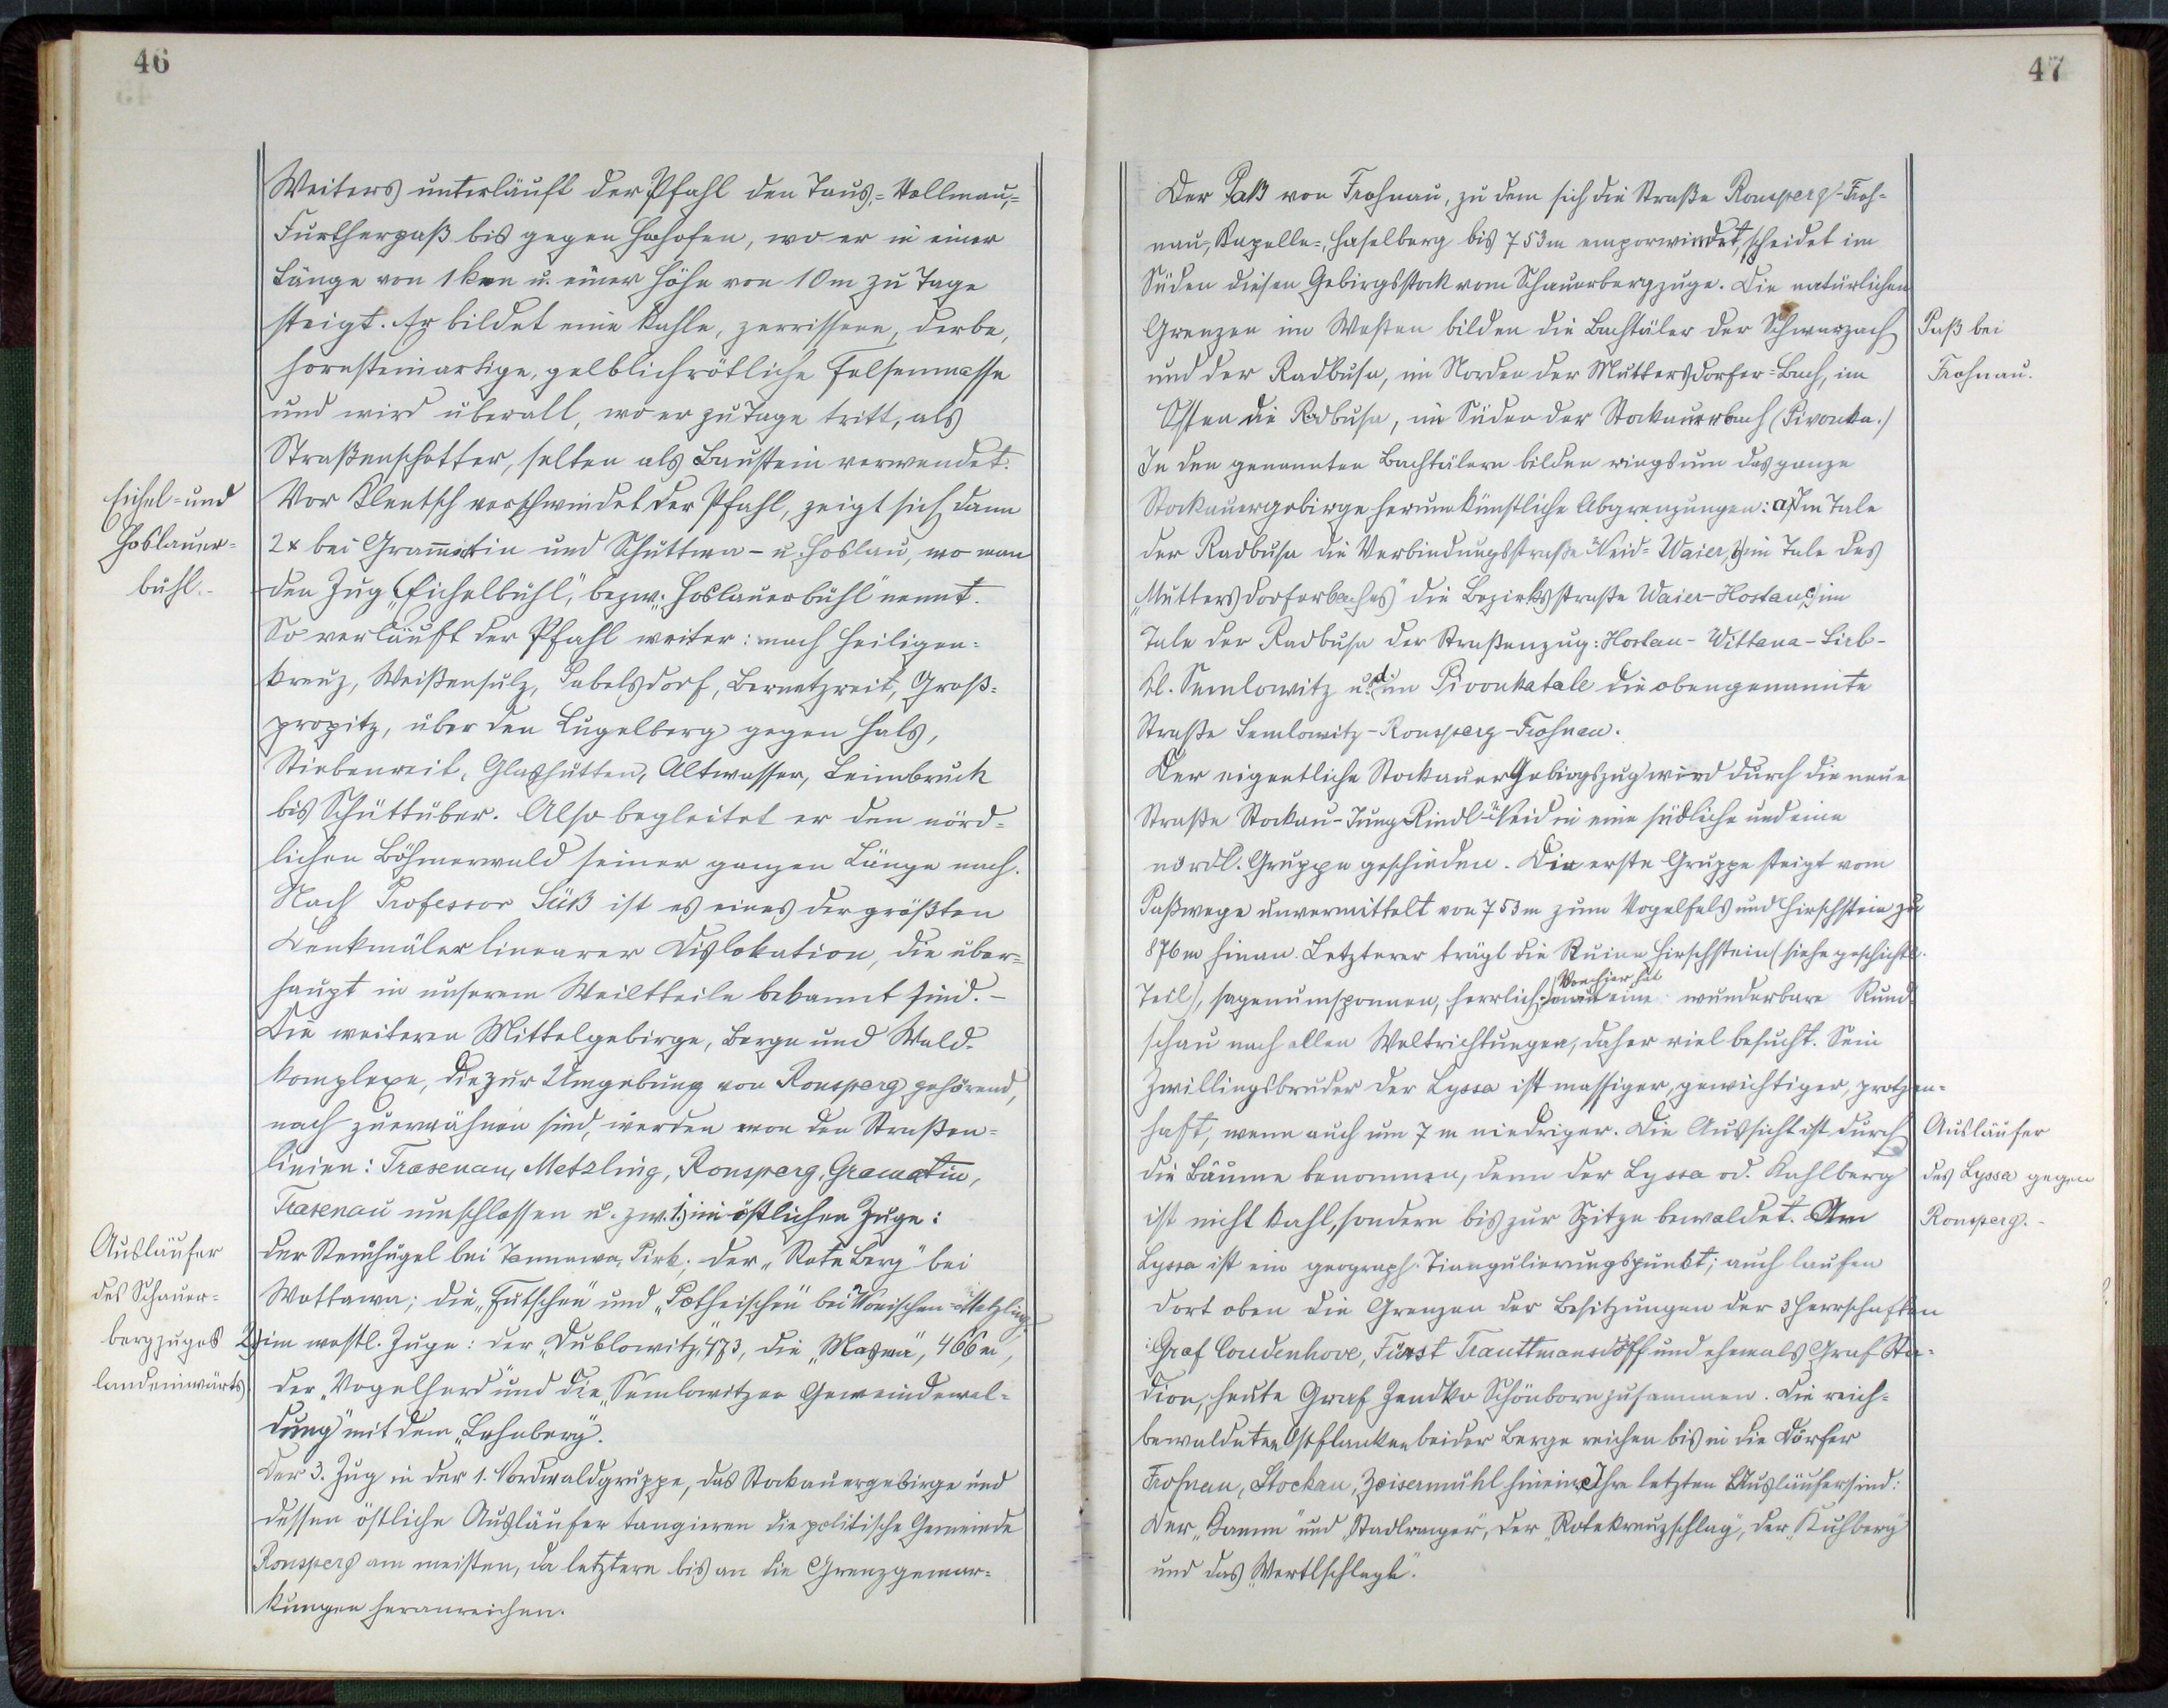 46
Weiters unterläuft der Pfahl den Taus,-Vollmau,-
Furtherpaß bis gegen Hohofen, wo er in einer
Länge von 1 km u. einer Höhe von 10 m zu Tage
steigt. Er bildet eine kahle, zerrissene, derbe,
hornsteinartige, gelblichrötliche Felsenmasse
und wird überall, wo er zu Tage tritt, als
Straßenschotter, selten als Baustein verwendet.
Eichel- und
Hoslauer-
bühl.-
Vor Klentsch verschwindet der Pfahl, zeigt sich dann
2x bei Gram̅atin und Schüttwa - u. Hoslau, wo man
den Zug „Eichelbühl“, bezw. „Hoslauerbühl“ nennt.
So verläuft der Pfahl weiter: nach Heiligen-
kreuz, Weißensulz, Pabelsdorf, Bernetzreit, Groß-
propitz, über den Lugelberg gegen Hals,
Stiebenreit, Glashütten, Altwasser, Leimbruck
bis Schüttüber. Also begleitet er den nörd-
lichen Böhmerwald seiner ganzen Länge nach.
Nach Professor Süß ist es eines der größten
Denkmäler linearer Dislokation, die über-
haupt in unserem Weltteile bekannt sind.-
Die weiteren Mittelgebirge, Berge und Wald-
komplexe, die zur Umgebung von Ronsperg gehörend,
noch zu erwähnen sind, werden von den Straßen-
linien: Trasenau, Metzling, Ronsperg, Gramatin,
Trasenau umschlossen u. zw. 1.) im östlichen Zuge:
Ausläufer
des Schauer-
bergzuges
landeinwärts
der Steinhügel bei Tannawa, Pirk; der „Rote Berg“ bei
Wottawa; die „Futschen“ und „Potheischen“ bei Wonischen-Metzling;
2.) im westl. Zuge: der „Dublowitz“ 473, die „Maswa“, 466 m,
der „Vogelherd“ und die „Semlowitzer Gemeindewal-
dung“ mit dem „Lohnberg“.
Der 3. Zug in der 1. Vordwaldgruppe, das Stockauergebirge und
dessen östliche Ausläufer tangieren die politische Gemeinde
Ronsperg am meisten, da letztere bis an die Grenzgemar-
kungen heranreichen.
47
Der Paß von Frohnau, zu dem sich die Straße Ronsperg-Froh-
nau,-Kapelle-, Haselberg bis 753 m emporwindet, scheidet im
Süden diesen Gebirgsstock vom Schauerbergzuge. Die natürlichen
Grenzen im Westen bilden die Bachtäler der Schwarzach
und der Radbusa, im Norden der Muttersdorfer-Bach, im
Osten die Radbusa, im Süden der Stockauerbach (Pivonka.)
Paß bei
Frohnau.
In den genannten Bachtälern bilden ringsum das ganze
Stockauergebirge herum künstliche Abgrenzungen: a) Im Tale
der Radbusa die Verbindungsstraße Neid-Waier, b) im Tale des
„Muttersdorferbaches“ die Bezirksstraße Waier-Hostau, c) im
Tale der Radbusa der Straßenzug: Hostau-Wittana-Sirb-
Kl. Semlowitz u. d. im Pivonkatale die obengenannte
Straße Semlowitz-Ronsperg-Frohnau.
Der eigentliche Stockauer Gebirgszug wird durch die neue
Straße Stockau-Jung Rindl-Neid in eine südliche und eine
nördl. Gruppe geschieden. Die erste Gruppe steigt vom
Paßwege unvermittelt von 753 m zum Vogelfels und Hirschstein zu
876 m hinan. Letzterer trägt die Ruine Hirschstein (siehe geschichtl.
Teil), sagenumsponnen, herrlich; Von hier hat man eine wunderbare Rund-
schau nach allen Weltrichtungen, daher viel besucht. Sein
Zwillingsbruder der Lyssa ist massiger, gewichtiger, protzen-
haft, wenn auch um 7 m niedriger. Die Aussicht ist durch
die Bäume benommen, denn der Lyssa od. Kahlberg
ist nicht kahl, sondern bis zur Spitze bewaldet. Am
Ausläufer
des Lyssa gegen
Ronsperg.-
Lyssa ist ein geograph. Tiangulierungspunkt; auch laufen
dort oben die Grenzen der Besitzungen der 3 Herrschaften
Graf Coudenhove, Fürst Trauttmansdorff und ehemals Graf Sta-
dion, heute Graf Zendko Schönborn zusammen. Die reich-
bewaldeten Ostflanken beider Berge reichen bis in die Dörfer
Frohnau, Stockau, Zeisermühl hinein. Ihre letzten Ausläufer sind:
Der „Kamm“ und „Stadlranger“, der „Rotekreuzschlag“, der „Kuhberg“
und das „Wertlschlagl“.